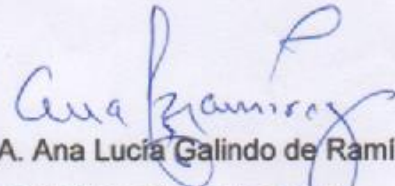 Ana Ramirez
A. Ana Lucía Galindo de Ramí